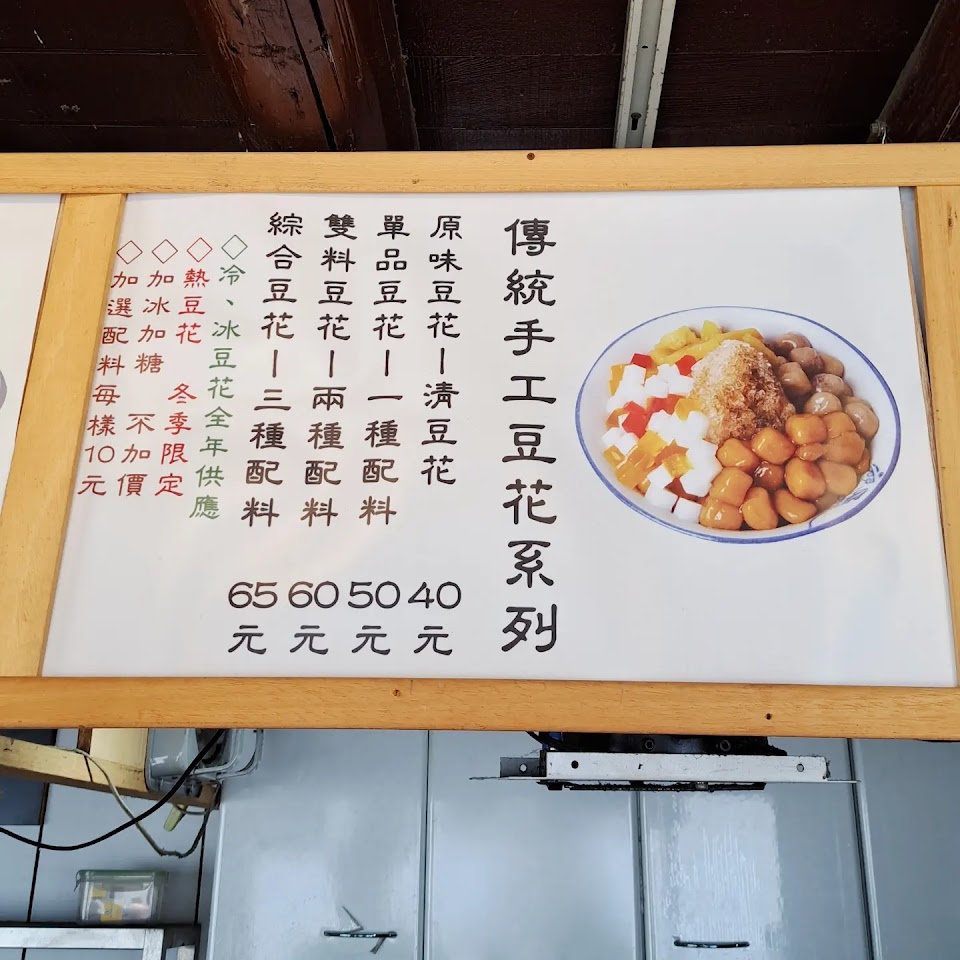 傳統手工豆花系列
原味豆花－清豆花 40元
單品豆花－一種配料 50元
雙料豆花－兩種配料 60元
綜合豆花－三種配料 65元
◇冷、冰豆花全年供應
◇熱豆花 冬季限定
◇加冰加糖 不加價
◇加選配料每樣10元